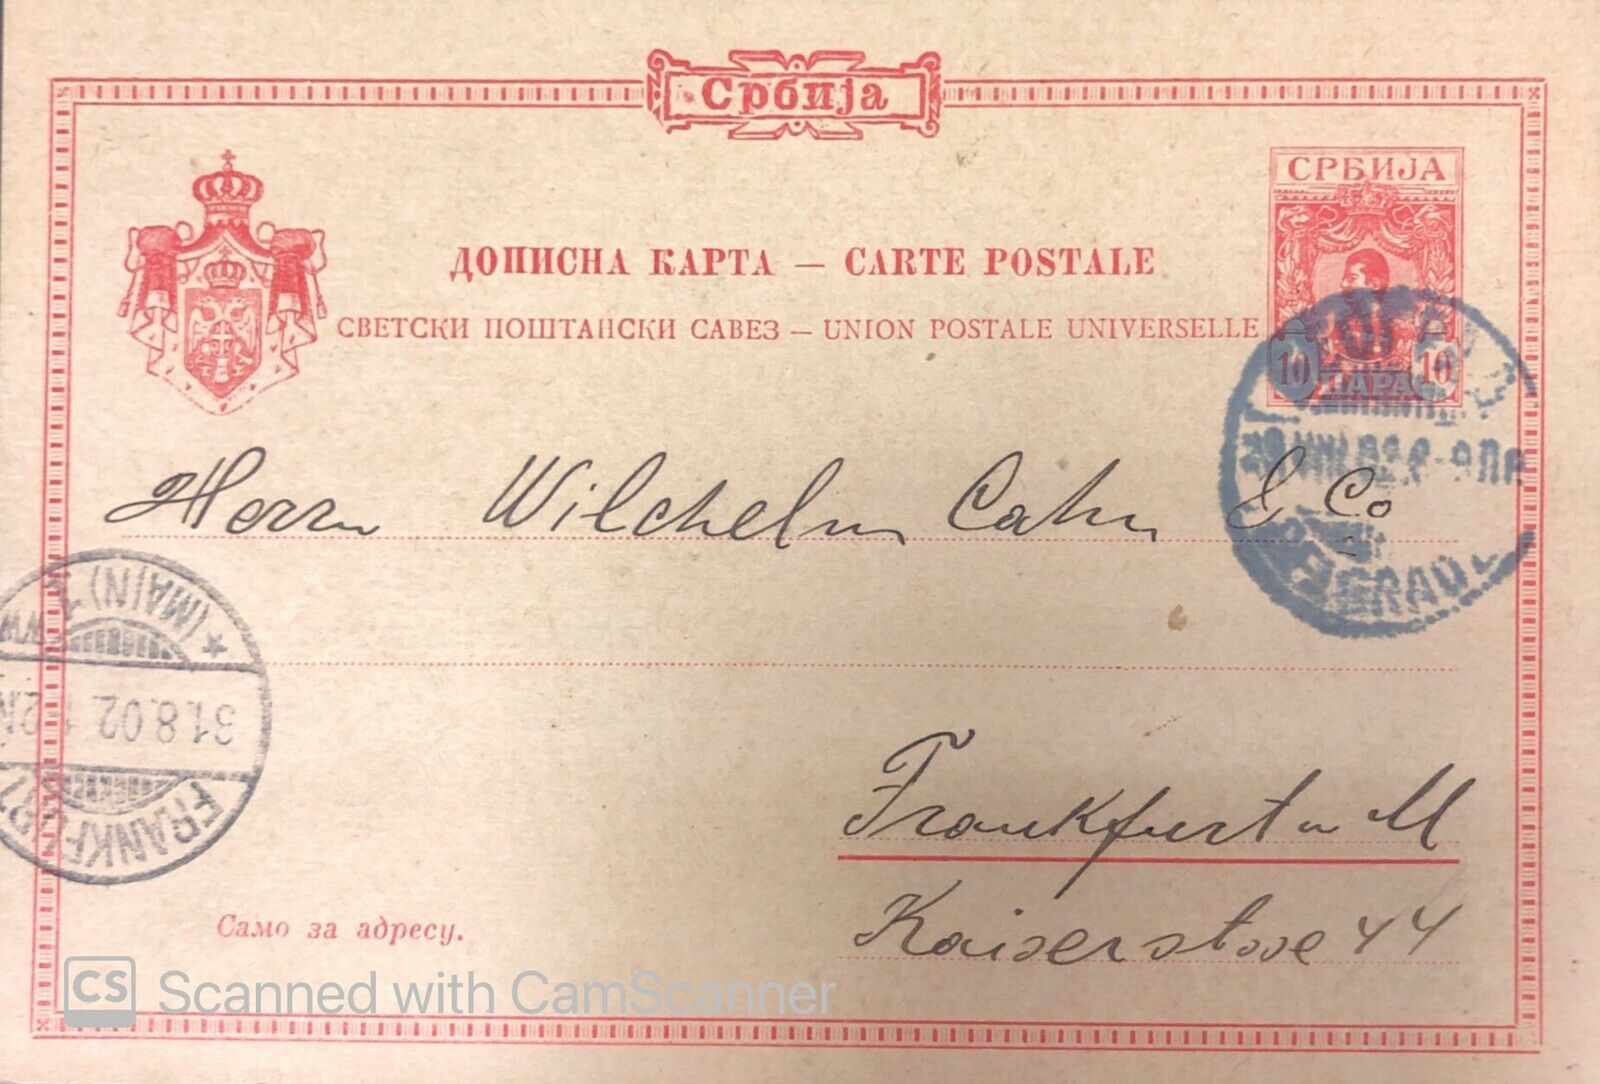 Србија
СРБИЈА
ДОПИСНА КАРТА — CARTE POSTALE
СВЕТСКИ ПОШТАНСКИ САВЕЗ — UNION POSTALE UNIVERSELLE
10 ПАРА 10
Herrn Wilchelm Cahn & Co
BEGRAD
* (MAIN) 1.
31.8.02
FRANKFURT
Frankfurt a M
Kaiserstrasse 44
Само за адресу.
CS Scanned with CamScanner